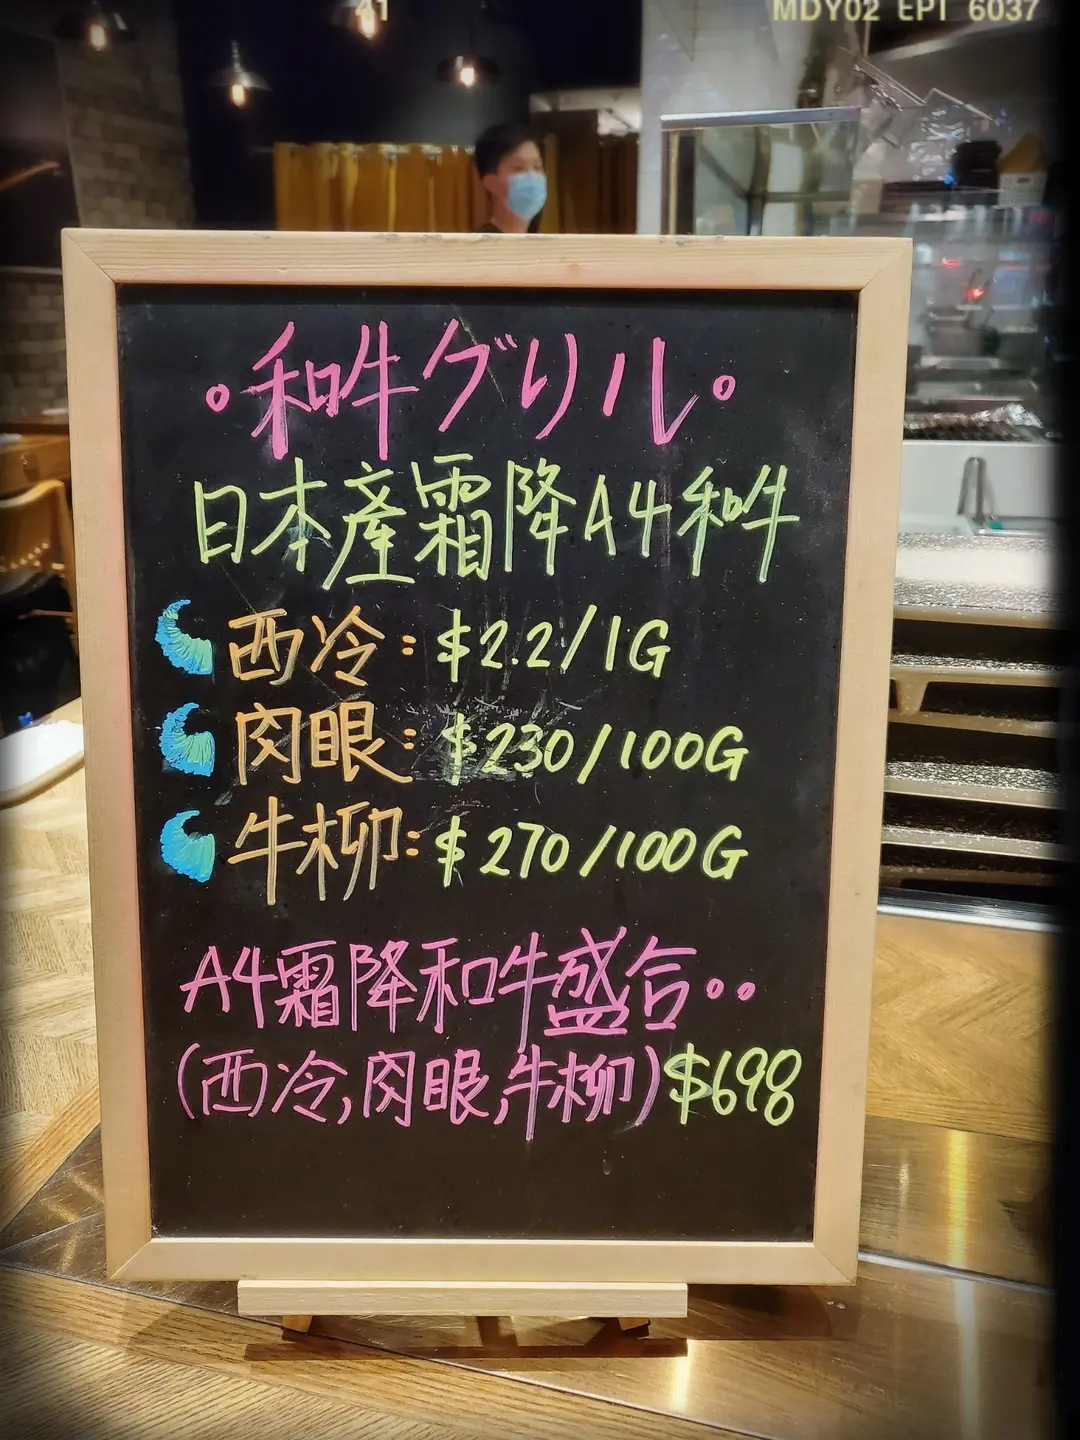 41
MDY02 EPI 6037
。和牛グリル。
日本產霜降A4和牛
西冷:$2.2/1G
肉眼:$230/100G
牛柳:$270/100G
A4霜降和牛盛合。。
(西冷,肉眼,牛柳)$698